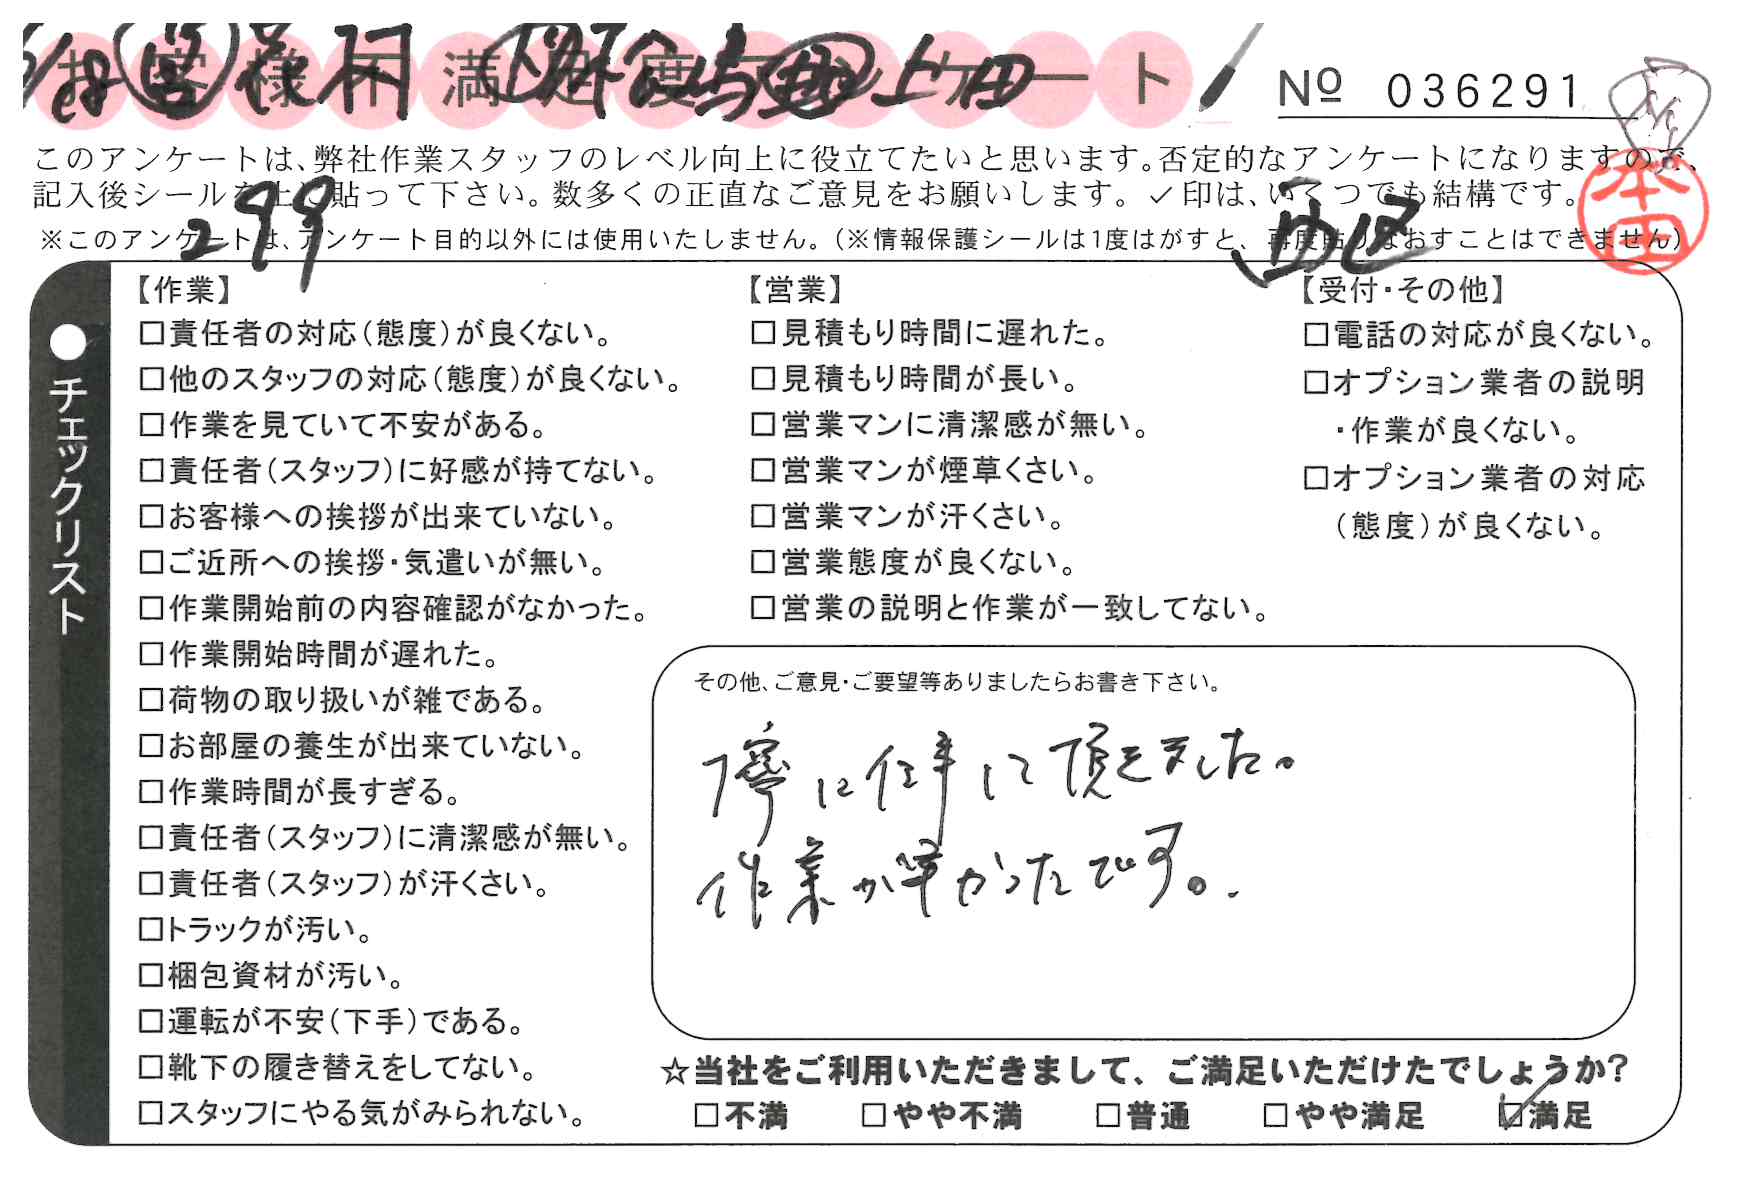 お客様不満足度アンケート
上田
No 036291
このアンケートは、弊社作業スタッフのレベル向上に役立てたいと思います。否定的なアンケートになりますので、
記入後シールを上に貼って下さい。数多くの正直なご意見をお願いします。✓印は、いくつでも結構です。
本田
299
西区
※このアンケートは、アンケート目的以外には使用いたしません。(※情報保護シールは1度はがすと、再度貼りなおすことはできません)
●チェックリスト
【作業】
□責任者の対応(態度)が良くない。
□他のスタッフの対応(態度)が良くない。
□作業を見ていて不安がある。
□責任者(スタッフ)に好感が持てない。
□お客様への挨拶が出来ていない。
□ご近所への挨拶・気遣いが無い。
□作業開始前の内容確認がなかった。
□作業開始時間が遅れた。
□荷物の取り扱いが雑である。
□お部屋の養生が出来ていない。
□作業時間が長すぎる。
□責任者(スタッフ)に清潔感が無い。
□責任者(スタッフ)が汗くさい。
□トラックが汚い。
□梱包資材が汚い。
□運転が不安(下手)である。
□靴下の履き替えをしてない。
□スタッフにやる気がみられない。
【営業】
□見積もり時間に遅れた。
□見積もり時間が長い。
□営業マンに清潔感が無い。
□営業マンが煙草くさい。
□営業マンが汗くさい。
□営業態度が良くない。
□営業の説明と作業が一致してない。
【受付・その他】
□電話の対応が良くない。
□オプション業者の説明
・作業が良くない。
□オプション業者の対応
(態度)が良くない。
その他、ご意見・ご要望等ありましたらお書き下さい。
丁寧に仕事して頂きました。
作業が早かったです。
☆当社をご利用いただきまして、ご満足いただけたでしょうか?
□不満 □やや不満 □普通 □やや満足 ☑満足